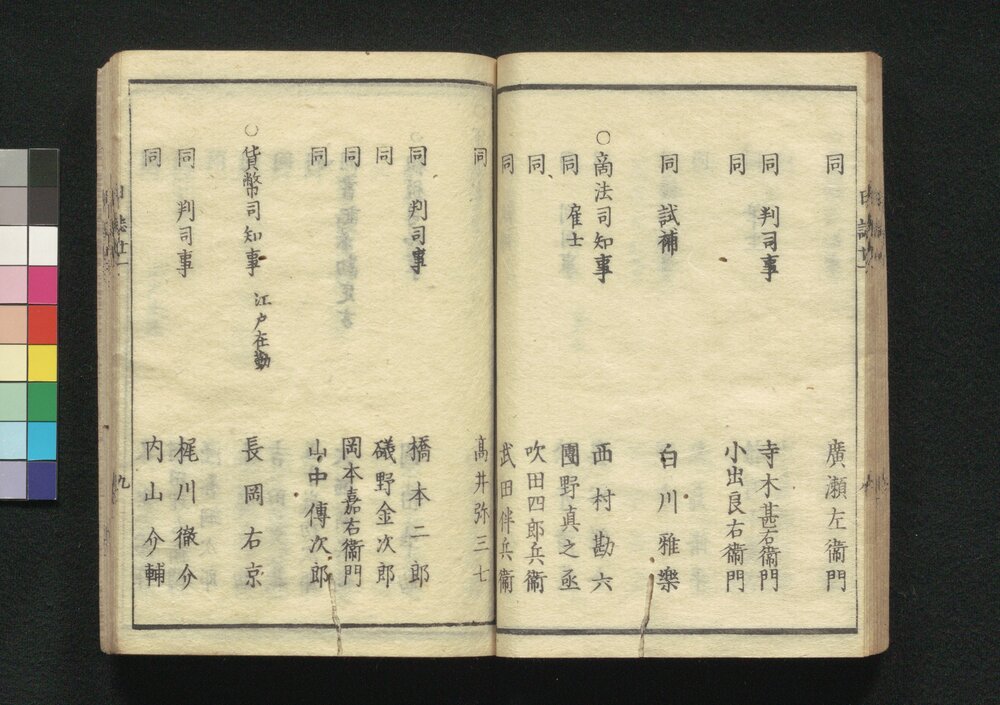 同 廣瀬左衞門
同 判司事 寺木甚右衞門
同 小出良右衞門
同 試補 白川雅樂
○商法司知事 西村勘六
同 雇士 團野真之亟
同 吹田四郎兵衞
同 武田伴兵衞
同 髙井弥三七
同 判司事 橋本二郎
同 礒野金次郎
同 岡本嘉右衞門
同 山中傳次郎
○貨幣司知事 江戸在勤 長岡右京
同 判司事 梶川徹介
同 内山介輔
九